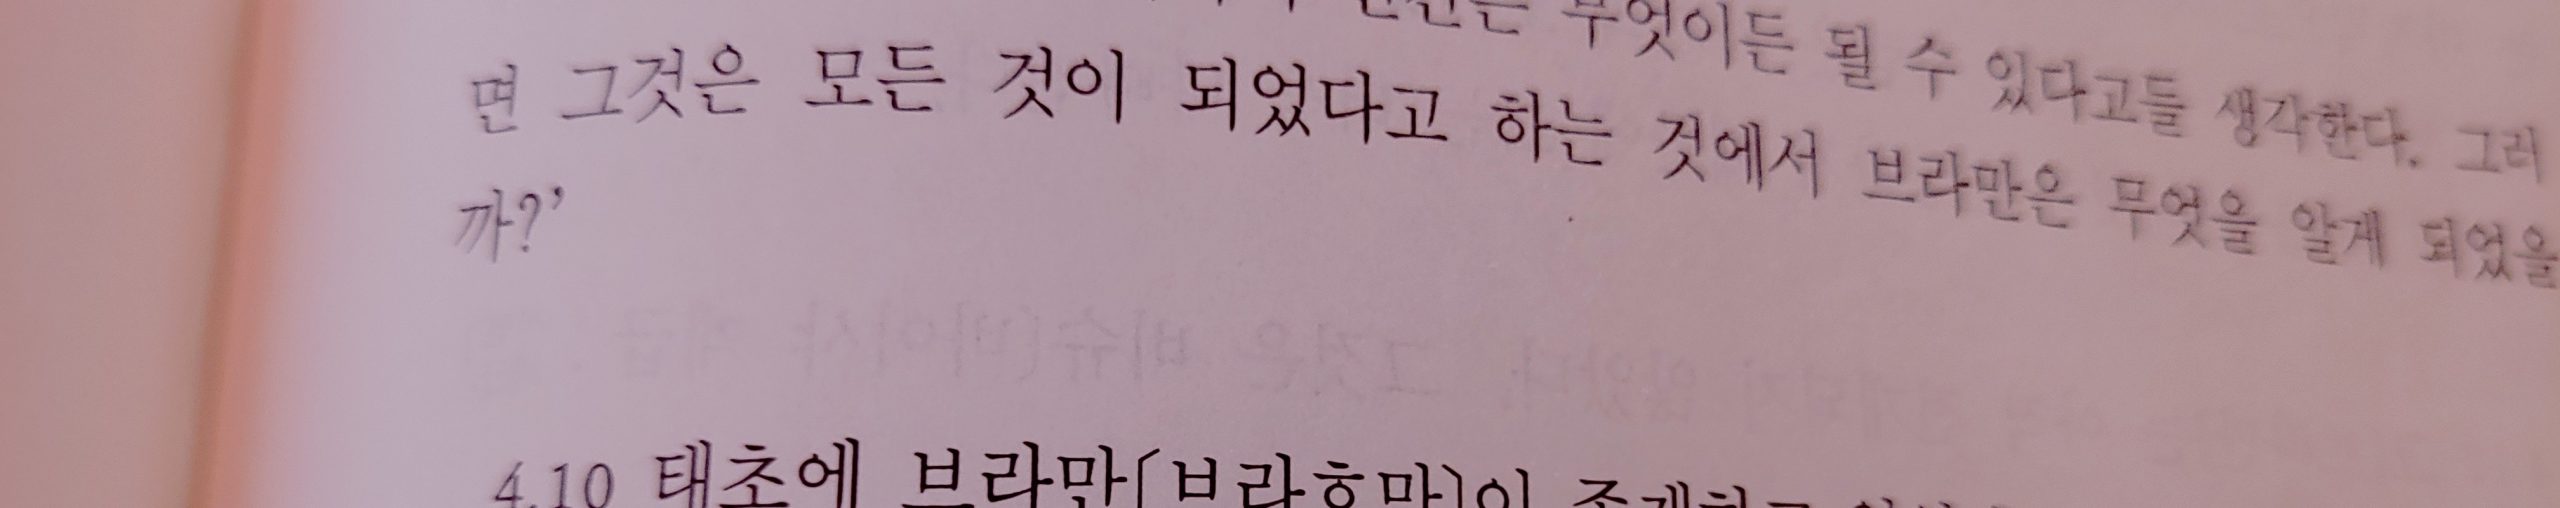 무엇이든 될 수 있다고들 생각한다. 그러
면 그것은 모든 것이 되었다고 하는 것에서 브라만은 무엇을 알게 되었을
까?’
4.10 태초에 브라만[브라흐마]이